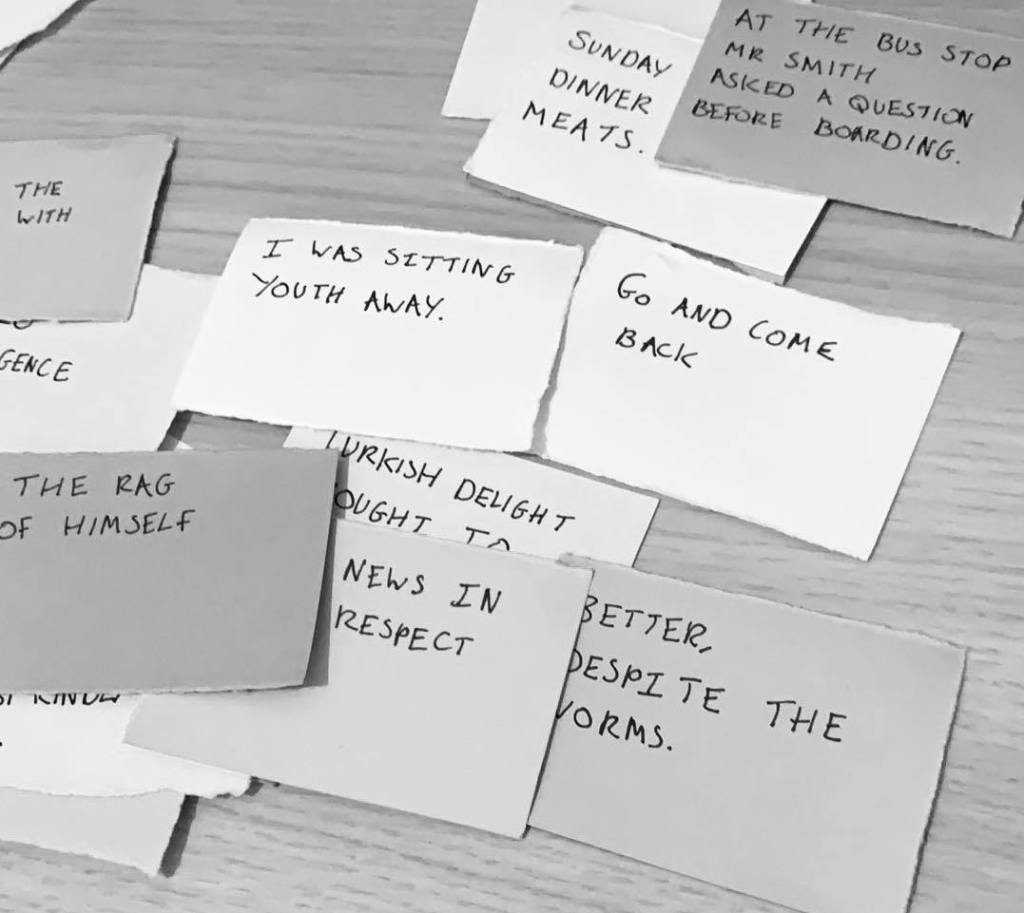 SUNDAY
DINNER
MEATS.
AT THE BUS STOP
MR SMITH
ASKED A QUESTION
BEFORE BOARDING.
THE
WITH
I WAS SITTING
YOUTH AWAY.
GO AND COME
BACK
GENCE
TURKISH DELIGHT
OUGHT TO
THE RAG
OF HIMSELF
NEWS IN
RESPECT
BETTER,
DESPITE THE
WORMS.